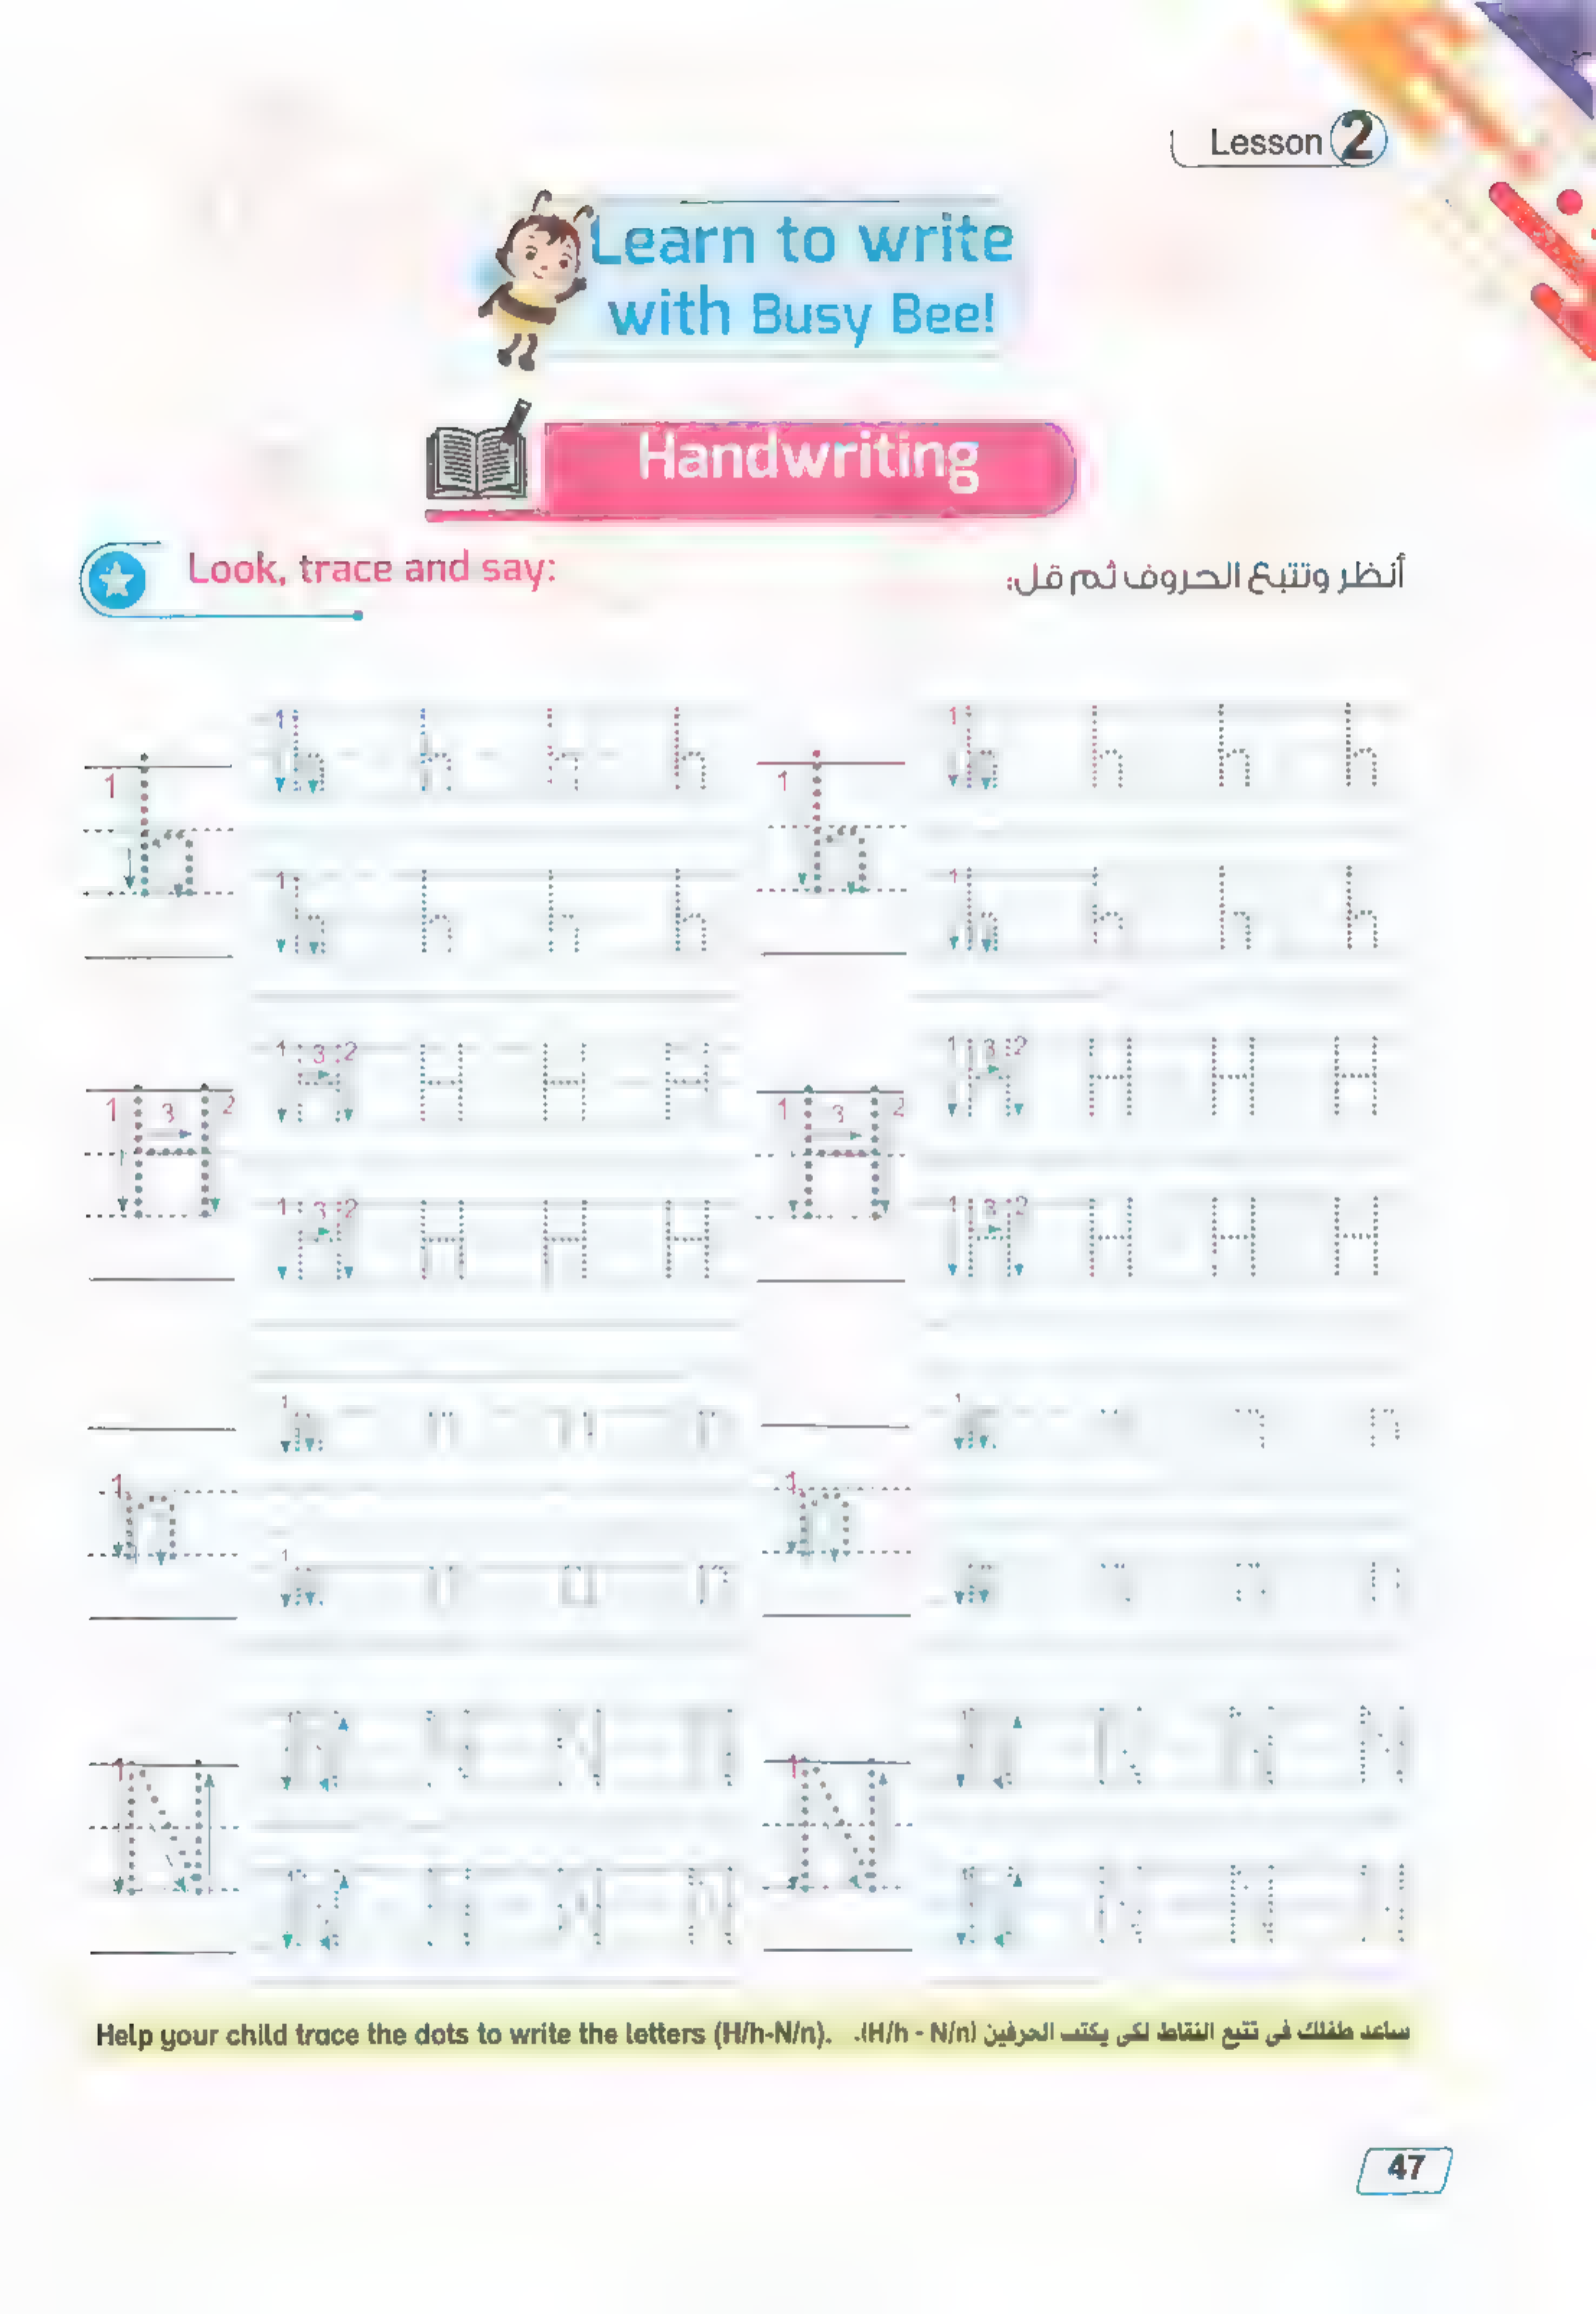 Lesson 2
Learn to write
with Busy Bee!
Handwriting
Look, trace and say:
أنظر وتتبع الحروف ثم قل:
1 h 1 h h h h 1 h 1 h h h h
1 h h h h 1 h h h h
1 3 2 H 1 3 2 H H H H 1 3 2 H 1 3 2 H H H H
1 3 2 H H H H 1 3 2 H H H H
1 n 1 n n n n 1 n 1 n n n n
1 n n n n 1 n n n n
1 N 1 N N N N 1 N 1 N N N N
1 N N N N 1 N N N N
Help your child trace the dots to write the letters (H/h-N/n).
ساعد طفلك فى تتبع النقاط لكى يكتب الحرفين (H/h - N/n).
47